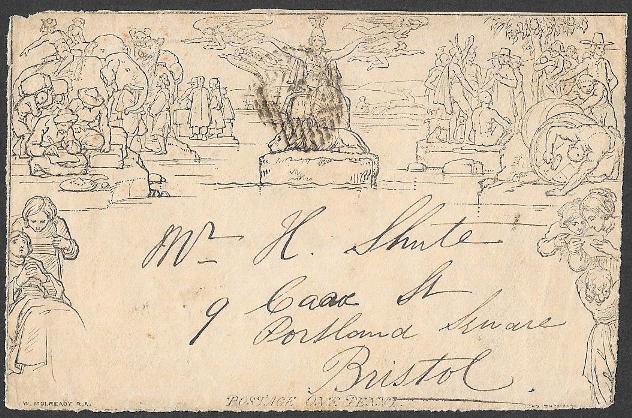 Mr H. Shute
9 Caax St
Portland Square
Bristol
W. MULREADY R.A.
POSTAGE ONE PENNY.